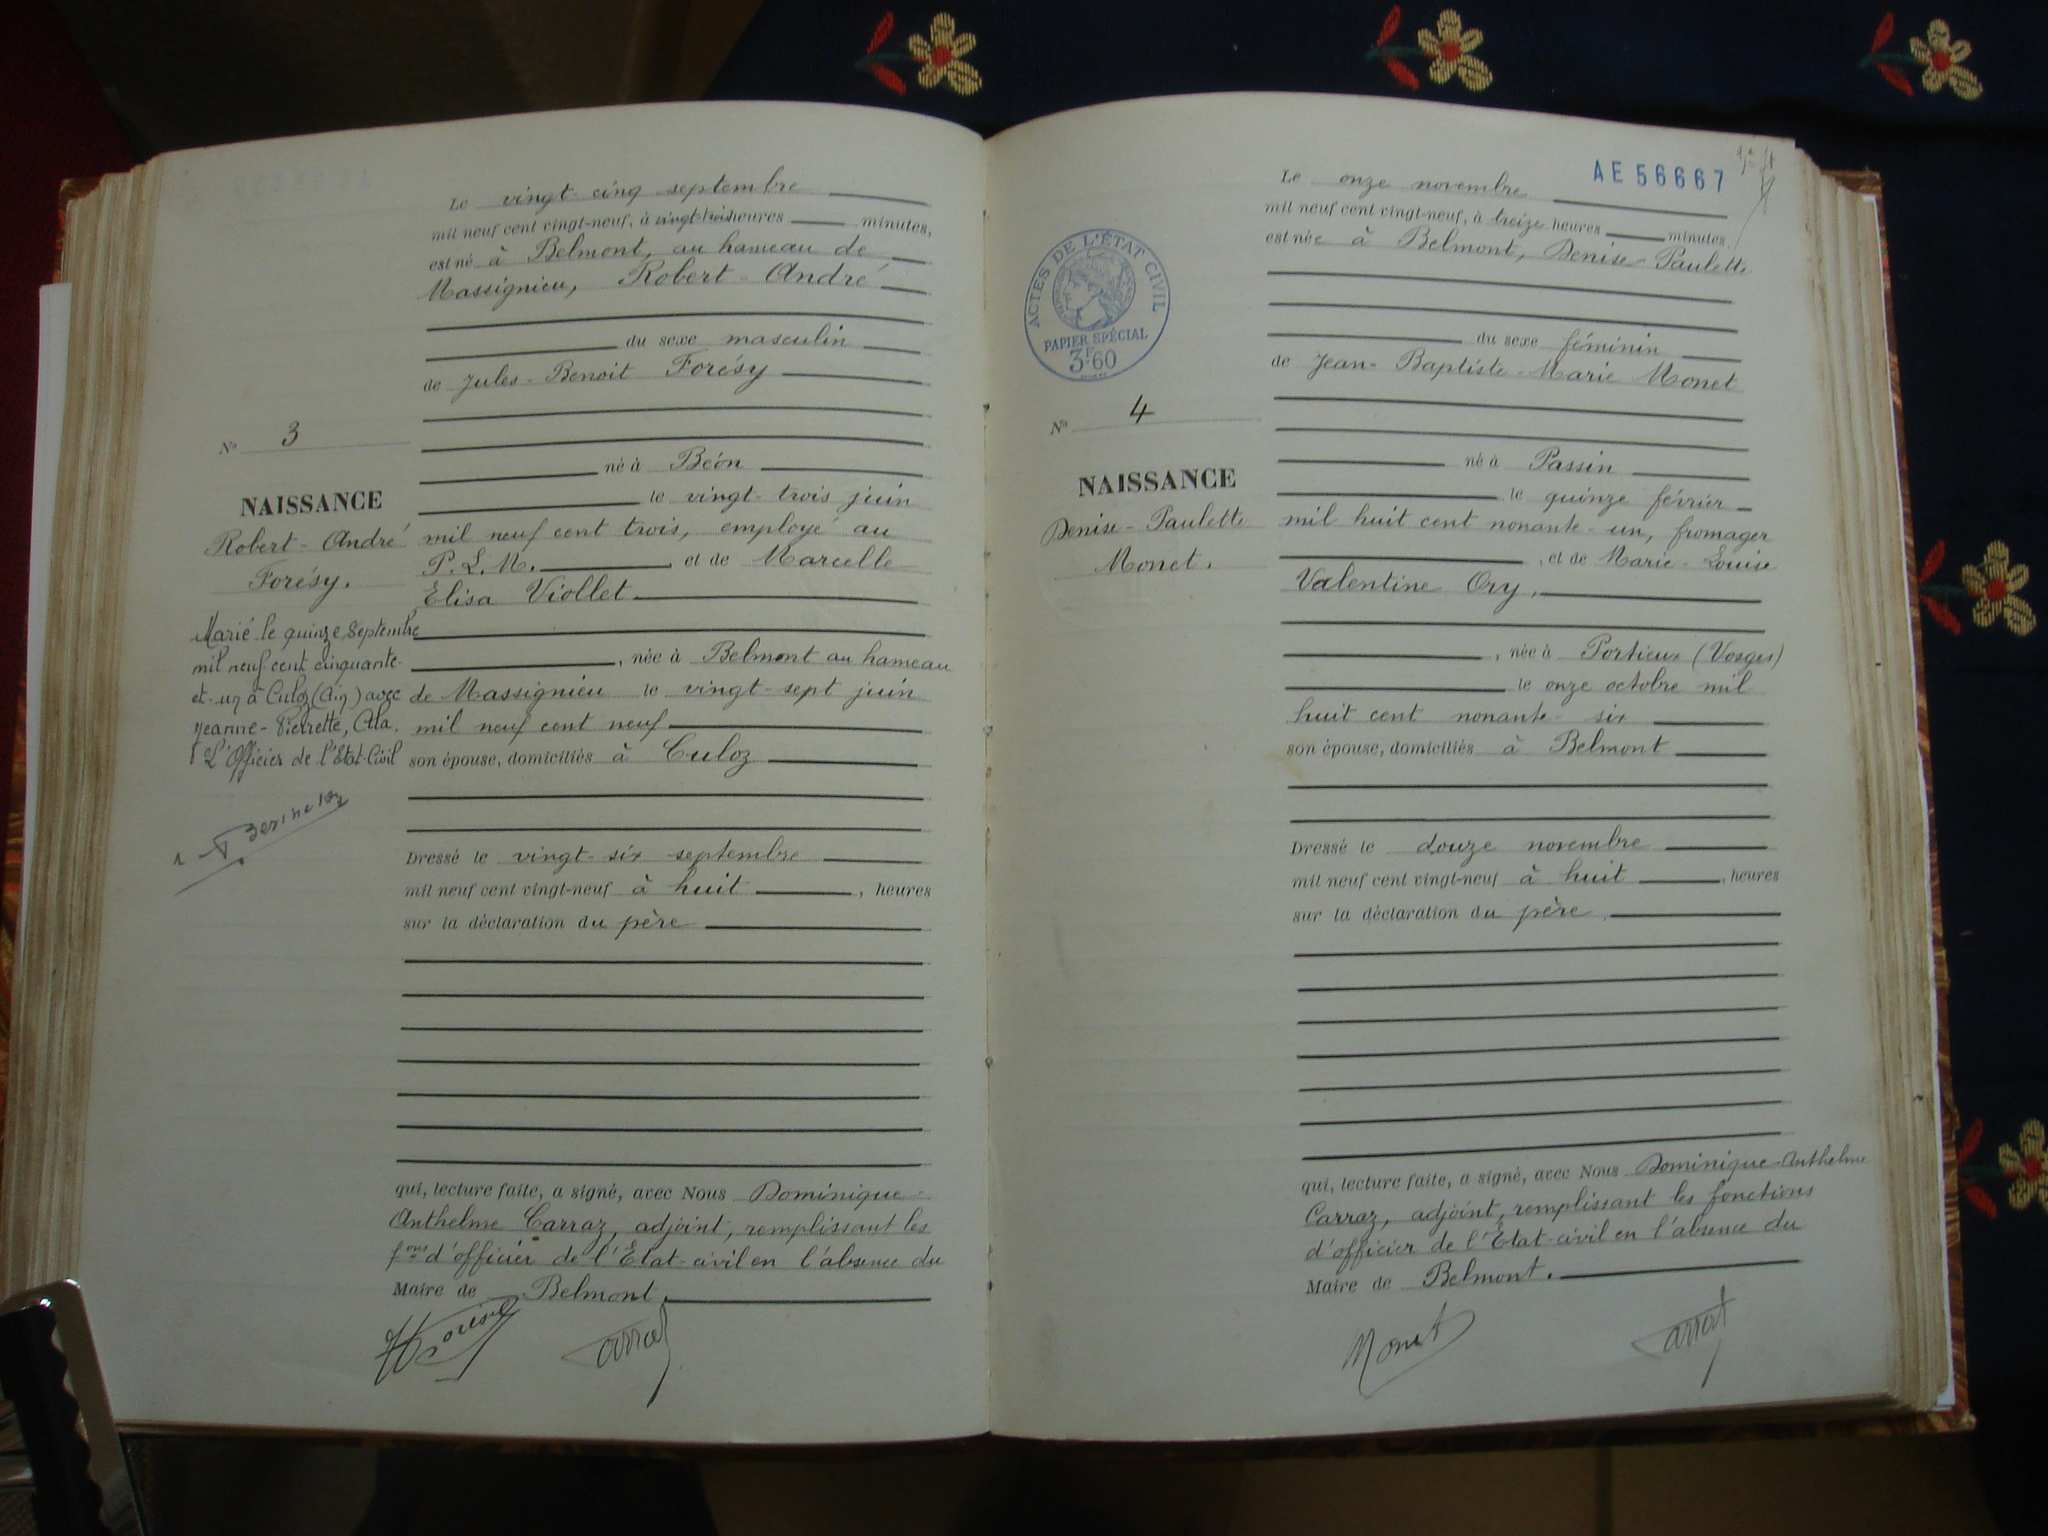 Le vingt-cinq septembre
mil neuf cent vingt-neuf, à vingt trois heures minutes,
est né à Belmont, au hameau de
Massignieu, Robert-André
du sexe masculin
de Jules-Benoit Forésy
né à Béon
le vingt-trois juin
mil neuf cent trois, employé au
P.L.M. , et de Marcelle
Elisa Viollet
, née à Belmont au hameau
de Massignieu le vingt-sept juin
mil neuf cent neuf
son épouse, domiciliés à Culoz
Dressé le vingt-six septembre
mil neuf cent vingt-neuf à huit , heures
sur la déclaration du père
qui, lecture faite, a signé, avec Nous Dominique-
Anthelme Carraz, adjoint, remplissant les
fons d'officier de l'Etat-civil en l'absence du
Maire de Belmont.
Carraz
N° 3
NAISSANCE
Robert-André
Forésy.
Marié le quinze Septembre
mil neuf cent cinquante-
et-un à Culoz (Ain) avec
Jeanne-Pierrette,
L'Officier de l'Etat-Civil
AE 56667
Le onze novembre
mil neuf cent vingt-neuf, à treize heures minutes,
est née à Belmont, Denise-Paulette
du sexe féminin
de Jean-Baptiste-Marie Monet
né à Passin
le quinze février
mil huit cent nonante-un, fromager
, et de Marie-Louise
Valentine Ory,
, née à Portieux (Vosges)
le onze octobre mil
huit cent nonante-six
son épouse, domiciliés à Belmont
Dressé le douze novembre
mil neuf cent vingt-neuf à huit , heures
sur la déclaration du père,
qui, lecture faite, a signé, avec Nous Dominique-Anthelme
Carraz, adjoint, remplissant les fonctions
d'officier de l'Etat-civil en l'absence du
Maire de Belmont.
Monet
Carraz
ACTES DE L'ÉTAT CIVIL
PAPIER SPÉCIAL
3F.60
N° 4
NAISSANCE
Denise-Paulette
Monet.